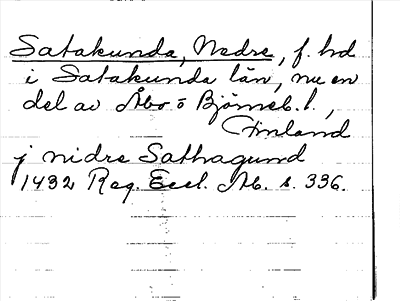 Satakunda, Nedre, f. hd
i Satakunda län, nu en
del av Åbo o Björneb. l.,
Finland
j nidre Sathagund
1432 Reg. Eccl. Ab. s. 336.